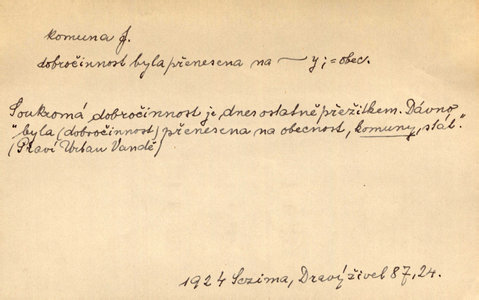 komuna f.
dobročinnost byla přenesena na ~ y; = obec.
Soukromá dobročinnost je dnes ostatně přežitkem. Dávno
byla (dobročinnost) přenesena na obecnost, komuny, stát."
(Praví Urban Vandě)
1924 Sezima, Dravý živel 87, 24.